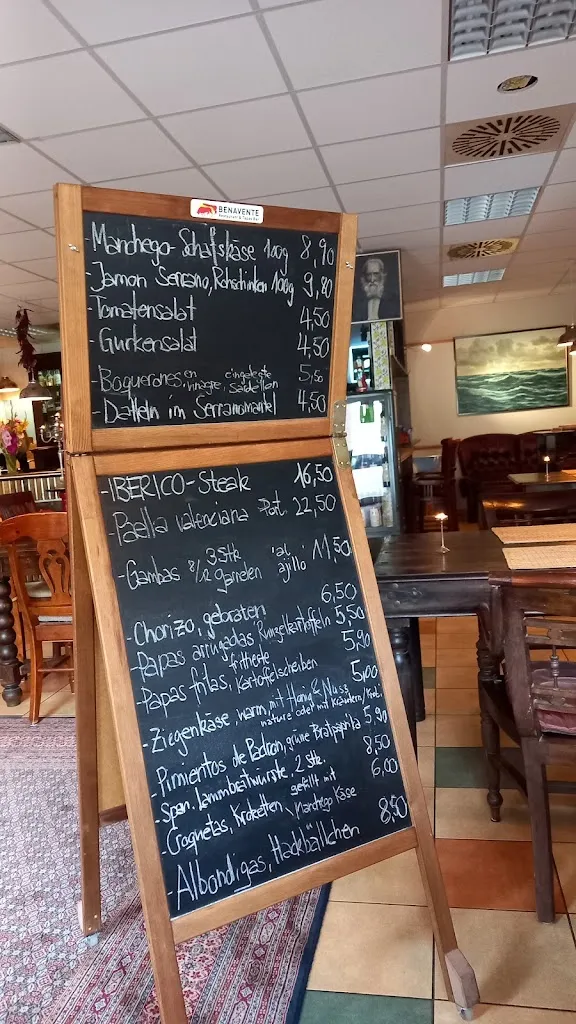 BENAVENTE
Restaurant & Tapas Bar
- Manchego-Schafskäse 100g 8,90
- Jamon Serrano, Rohschinken 100g 9,80
- Tomatensalat 4,50
- Gurkensalat 4,50
- Boquerones en vinagre, eingelegte Sardellen 5,50
- Datteln im Serranomantel 4,50
- IBERICO-Steak 16,50
- Paella valenciana Port. 22,50
- Gambas 8/12 3 Stk garnelen 'al ajillo' 11,50
- Chorizo, gebraten 6,50
- Papas arrugadas Runzelkartoffeln 5,50
- Papas fritas, frittierte Kartoffelscheiben 5,90
- Ziegenkäse warm, mit Honig & Nuss 5,00
nature oder mit Kräutern/
- Pimientos de Padron, grüne Bratpaprika 5,90
- Span. Lammbratwurste, 2 Stk. 8,50
- Croquetas, Kroketten gefüllt mit Manchego Käse 6,00
- Albondigas, Hackbällchen 8,50